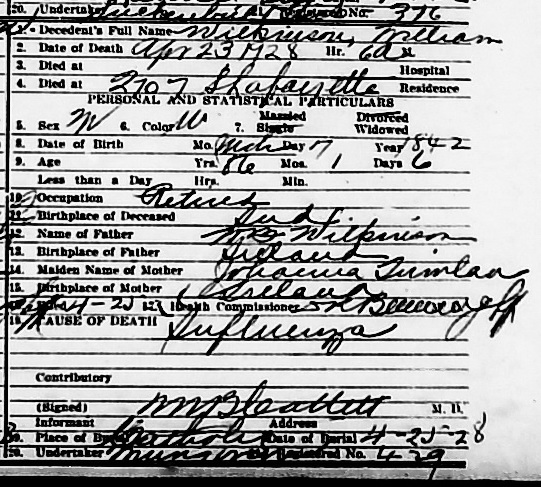 20. Undertaker Registered No. 376
1. Decedent's Full Name Wilkinson, William
2. Date of Death Apr 23 1928 Hr. 6a M
3. Died at Hospital
4. Died at 2707 Lafayette Residence
PERSONAL AND STATISTICAL PARTICULARS
5. Sex M 6. Color W 7. Married Single Divorced Widowed
8. Date of Birth Mo. Mch Day 17 Year 1842
9. Age Yrs. 86 Mos. 1 Days 6
Less than a Day Hrs. Min.
10. Occupation Retired
11. Birthplace of Deceased Ind
12. Name of Father Wilkinson
13. Birthplace of Father Ireland
14. Maiden Name of Mother Johanna
15. Birthplace of Mother Ireland
4-25 Health Commissioner
18. CAUSE OF DEATH Influenza
Contributory
(Signed) M. D.
Informant Address
19. Place of Burial Catholic Date of Burial 4-25-28
20. Undertaker Registered No. 429